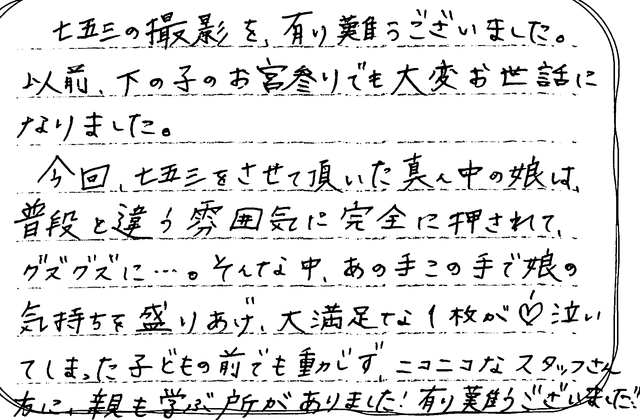 七五三の撮影を、有り難うございました。
以前、下の子のお宮参りでも大変お世話に
なりました。
今回、七五三をさせて頂いた真ん中の娘は、
普段と違う雰囲気に完全に押されて、
グズグズに…。そんな中、あの手この手で娘の
気持ちを盛りあげ、大満足な1枚が♡泣い
てしまった子どもの前でも動じず、ニコニコなスタッフさん
方に、親も学ぶ所がありました!有り難うございました!